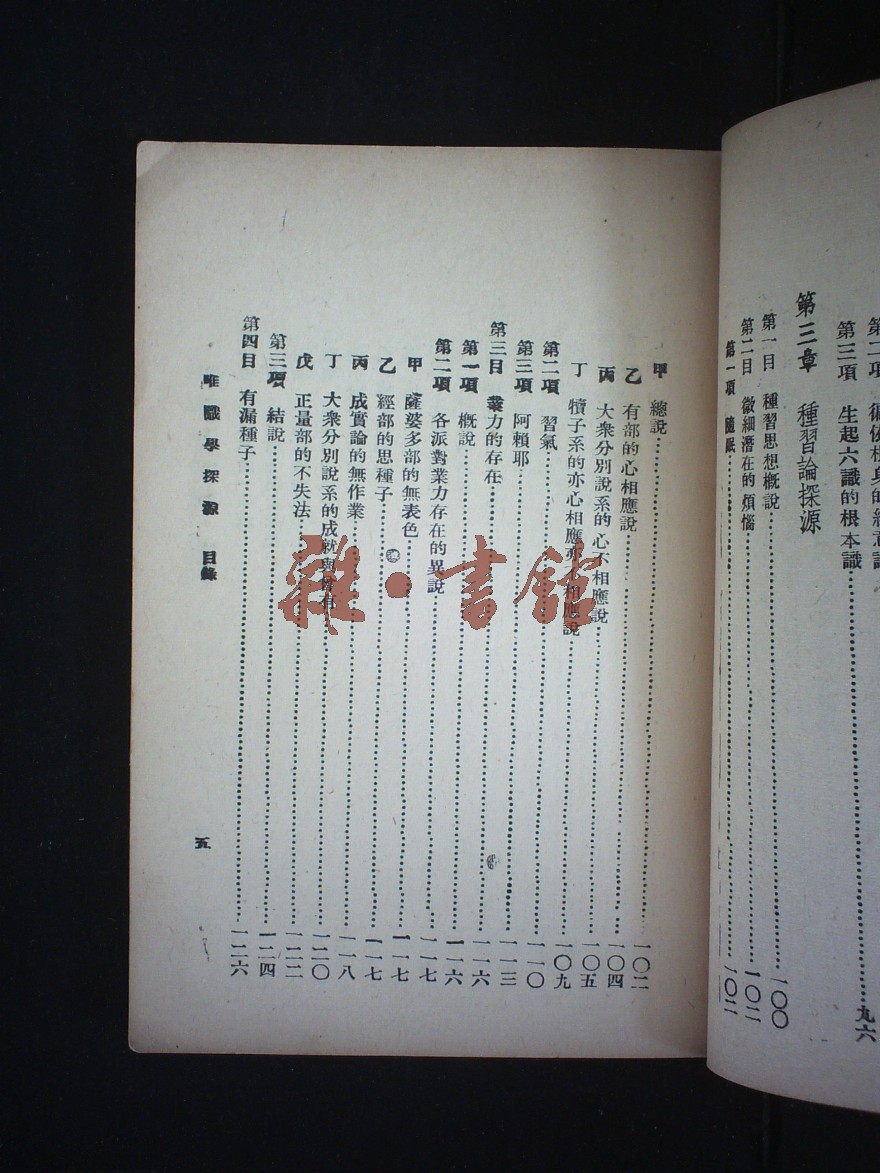 第三項 生起六識的根本識……九六
第三章 種習論探源
第一目 種習思想概說……一〇〇
第二目 微細潛在的煩惱……一〇二
第一項 隨眠……一〇二
甲 總說……一〇二
乙 有部的心相應說……一〇四
丙 大衆分別說系的心不相應說……一〇五
丁 犢子系的亦心相應亦不相應說……一〇九
第二項 習氣……一一〇
第三項 阿賴耶……一一三
第三目 業力的存在……一一六
第一項 概說……一一六
第二項 各派對業力存在的異說……一一七
甲 薩婆多部的無表色……一一七
乙 經部的思種子……一一七
丙 成實論的無作業……一一八
丁 大衆分別說系的成就與曾有……一二〇
戊 正量部的不失法……一二二
第三項 結說……一二四
第四目 有漏種子……一二六
唯識學探源 目錄
五
雜·書館